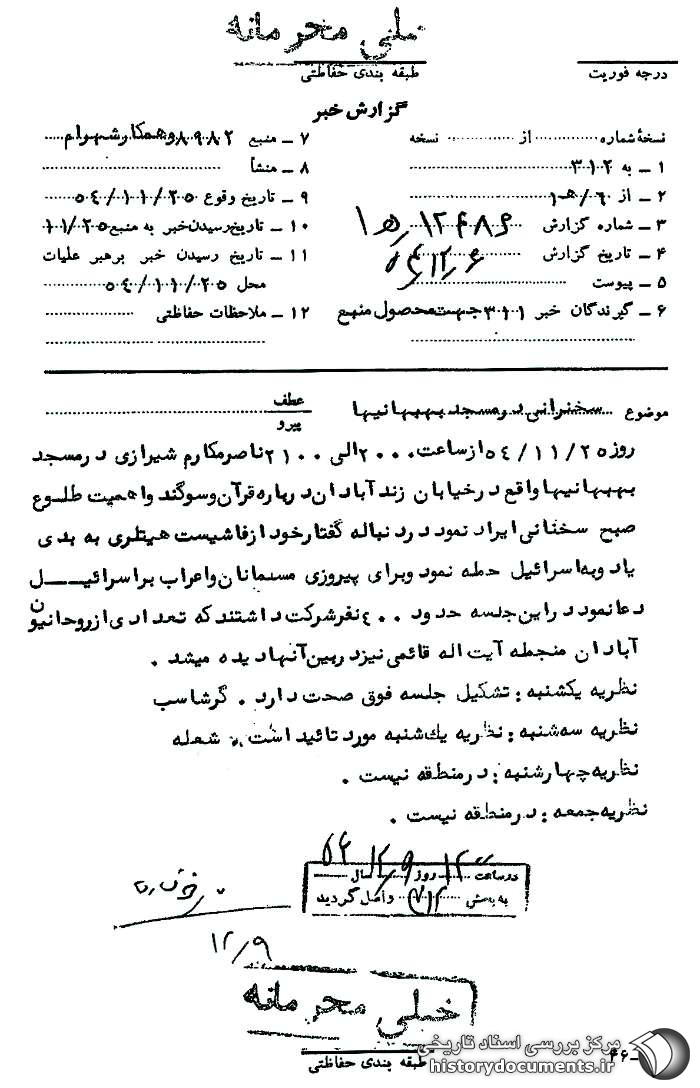 خیلی محرمانه
طبقه بندی حفاظتی
درجه فوریت
گزارش خبر
نسخهٔ شماره ........ از ........ نسخه
۱ ـ به ۳۱۲
۲ ـ از ۶/هـ۱
۳ ـ شماره گزارش ۱۲۴۸۶/هـ۱
۴ ـ تاریخ گزارش ۵۴/۱۲/۶
۵ ـ پیوست
۶ ـ گیرندگان خبر ۳۱۱ جهت محصول منبع
۷ ـ منبع ۸۹۸۲ وهمکارشهرام
۸ ـ منشأ
۹ ـ تاریخ وقوع ۵۴/۱۱/۲۵
۱۰ ـ تاریخ رسیدن خبر به منبع ۱۱/۲۵
۱۱ ـ تاریخ رسیدن خبر برهبر علیات
محل ۵۴/۱۱/۲۵
۱۲ ـ ملاحظات حفاظتی
موضوع سخنرانی درمسجد بهبهانیها
عطف
پیرو
روز ۵۴/۱۱/۲۵ از ساعت ۲۰۰۰ الی ۲۱۰۰ ناصرمکارم شیرازی درمسجد
بهبهانیها واقع درخیابان زند آبادان درباره قرآن وسوگند واهمیت طلوع
صبح سخنانی ایراد نمود در دنباله گفتارخود ازفاشیست هیتلری به بدی
یاد وبه اسرائیل حمله نمود وبرای پیروزی مسلمانان واعراب براسرائیل
دعا نمود دراین جلسه حدود ۴۰۰ نفرشرکت داشتند که تعدادی ازروحانیون
آبادان منجمله آیت اله قائمی نیز دربین آنها دیده میشد .
نظریه یکشنبه : تشکیل جلسه فوق صحت دارد . گرشاسب
نظریه سه شنبه : نظریه یك شنبه مورد تائید است . شعله
نظریه چهارشنبه : درمنطقه نیست .
نظریه جمعه : درمنطقه نیست .
در ساعت ۱۲ روز ۱۲/۹ سال ۵۴
به بخش ۳۱۲ واصل گردید
۱۲/۹
خیلی محرمانه
طبقه بندی حفاظتی
مرکز بررسی اسناد تاریخی
historydocuments.ir